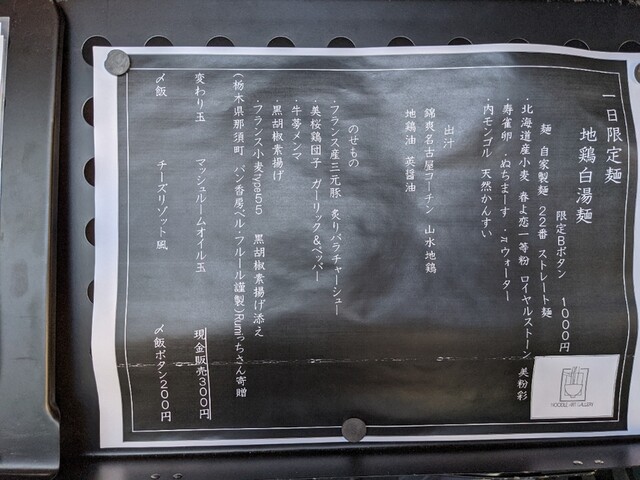 一日限定麺
地鶏白湯麺
限定Bボタン 1000円
麺 自家製麺 22番 ストレート麺
・北海道産小麦 春よ恋一等粉 ロイヤルストーン 美粉彩
・寿雀卵 ・ぬちまーす ・πウォーター
・内モンゴル 天然かんすい
出汁
錦爽名古屋コーチン 山水地鶏
地鶏油 英醤油
のせもの
・フランス産三元豚 炙りバラチャーシュー
・美桜鶏団子 ガーリック&ペッパー
・牛蒡メンマ
・黒胡椒素揚げ
・フランス小麦Type55 黒胡椒素揚げ添え
(栃木県那須町 パン香房ベル・フルール謹製)Rumiっちさん寄贈
変わり玉 マッシュルームオイル玉 現金販売300円
〆飯 チーズリゾット風 〆飯ボタン200円
NOODLE ART GALLERY